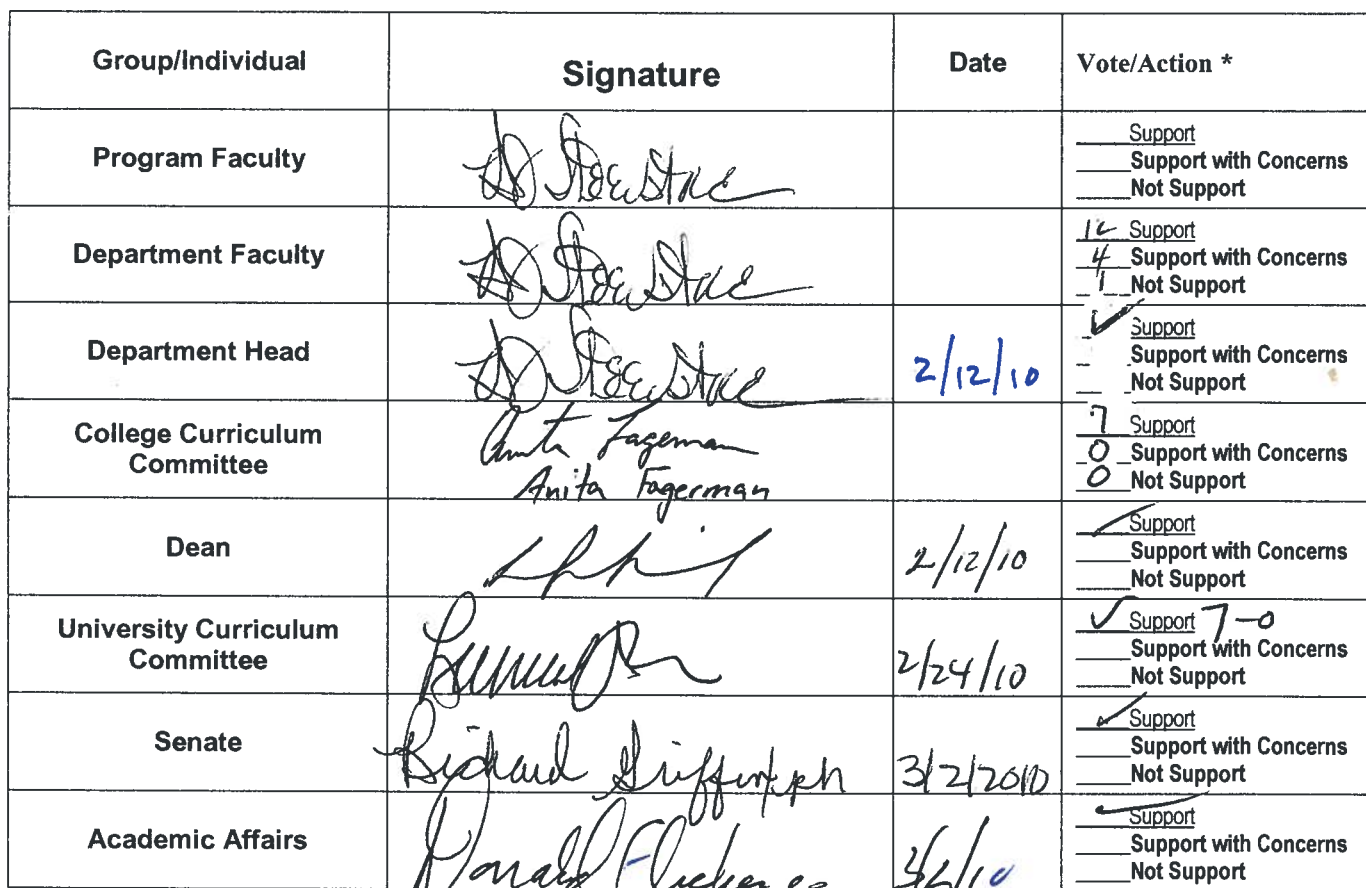 Group/Individual Signature Date Vote/Action *
Program Faculty
___Support
___Support with Concerns
___Not Support
Department Faculty
Support
4 Support with Concerns
1 Not Support
Department Head 2/12/10
✓ Support
___Support with Concerns
___Not Support
College Curriculum Committee
Anita Fagerman
Anita Fagerman
7 Support
0 Support with Concerns
0 Not Support
Dean 2/12/10
✓ Support
___Support with Concerns
___Not Support
University Curriculum Committee 2/24/10
✓ Support 7-0
___Support with Concerns
___Not Support
Senate Richard Griffin 3/2/2010
✓ Support
___Support with Concerns
___Not Support
Academic Affairs
✓ Support
___Support with Concerns
___Not Support